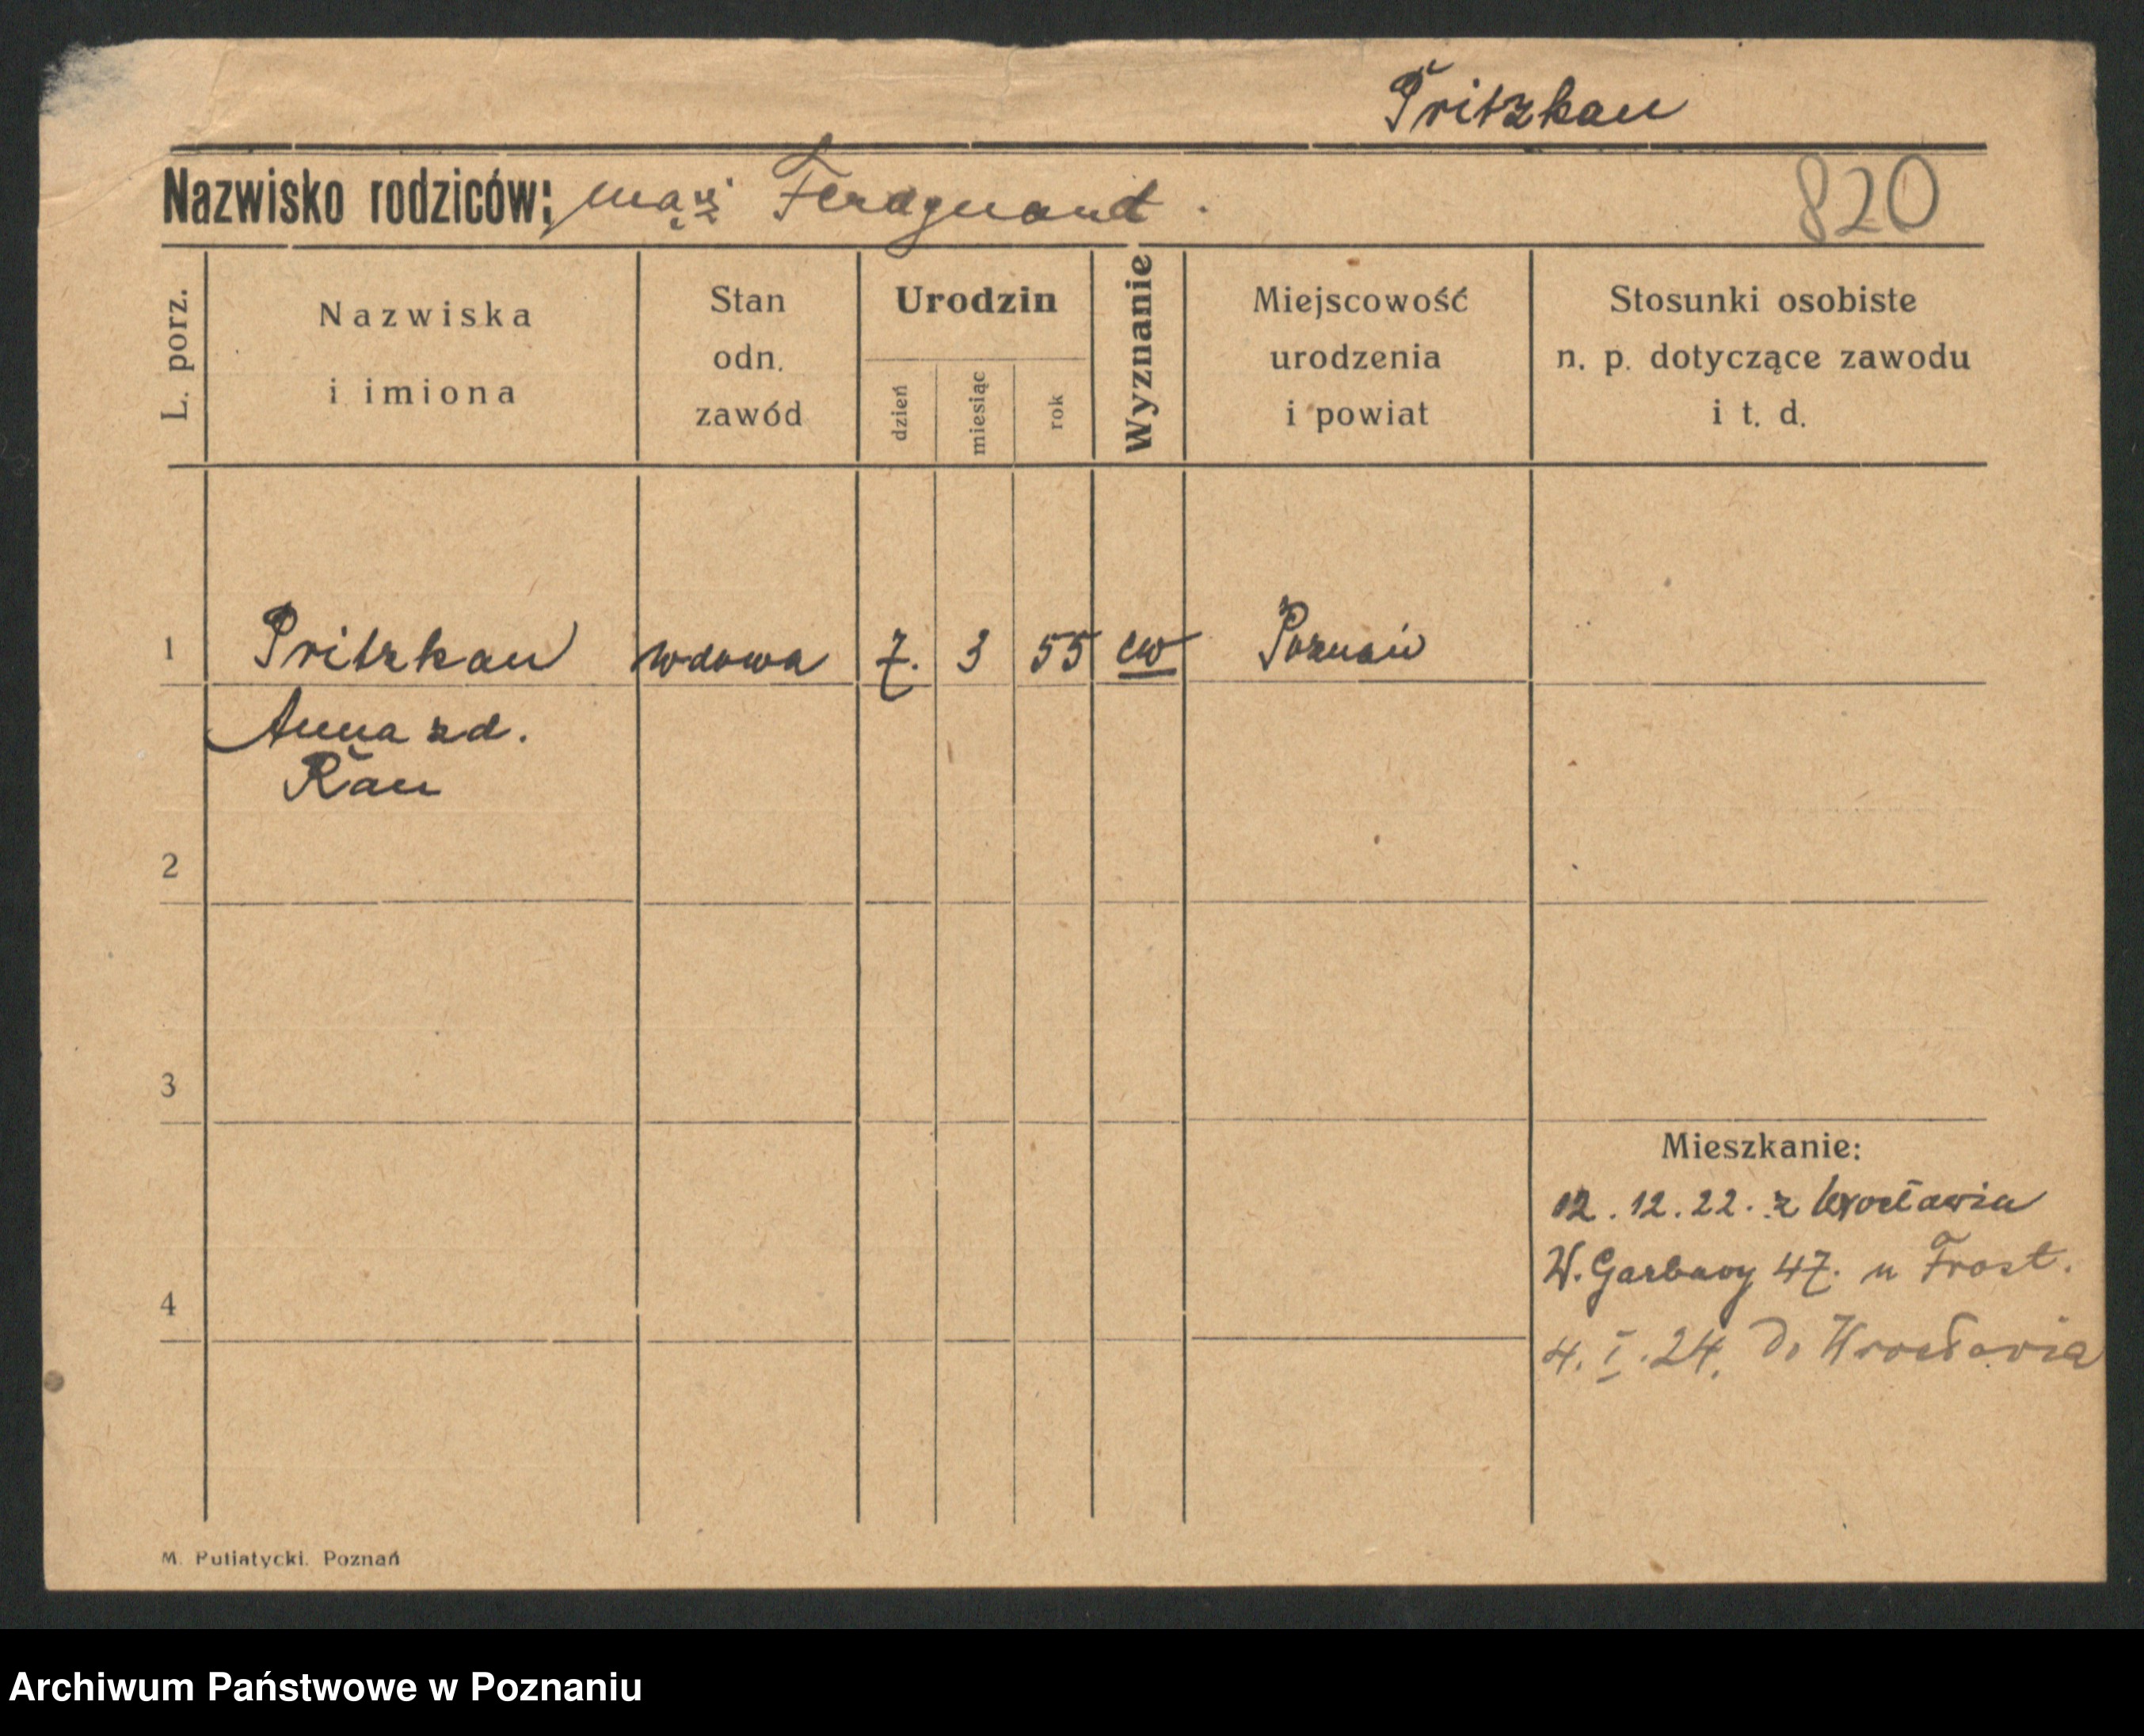 Pritzkau
Nazwisko rodziców: mąż Ferdynand.
820
L. porz.
Nazwiska
i imiona
Stan
odn.
zawód
Urodzin
dzień
miesiąc
rok
Wyznanie
Miejscowość
urodzenia
i powiat
Stosunki osobiste
n. p. dotyczące zawodu
i t. d.
1 Pritzkau wdowa 7. 3 55 ew Poznań
Anna zd.
Rau
2
3
4
Mieszkanie:
12.12.22. z Wrocławia
W. Garbary 47. u Frost.
4. I. 24. do Wrocławia
M. Putiatycki. Poznań
Archiwum Państwowe w Poznaniu